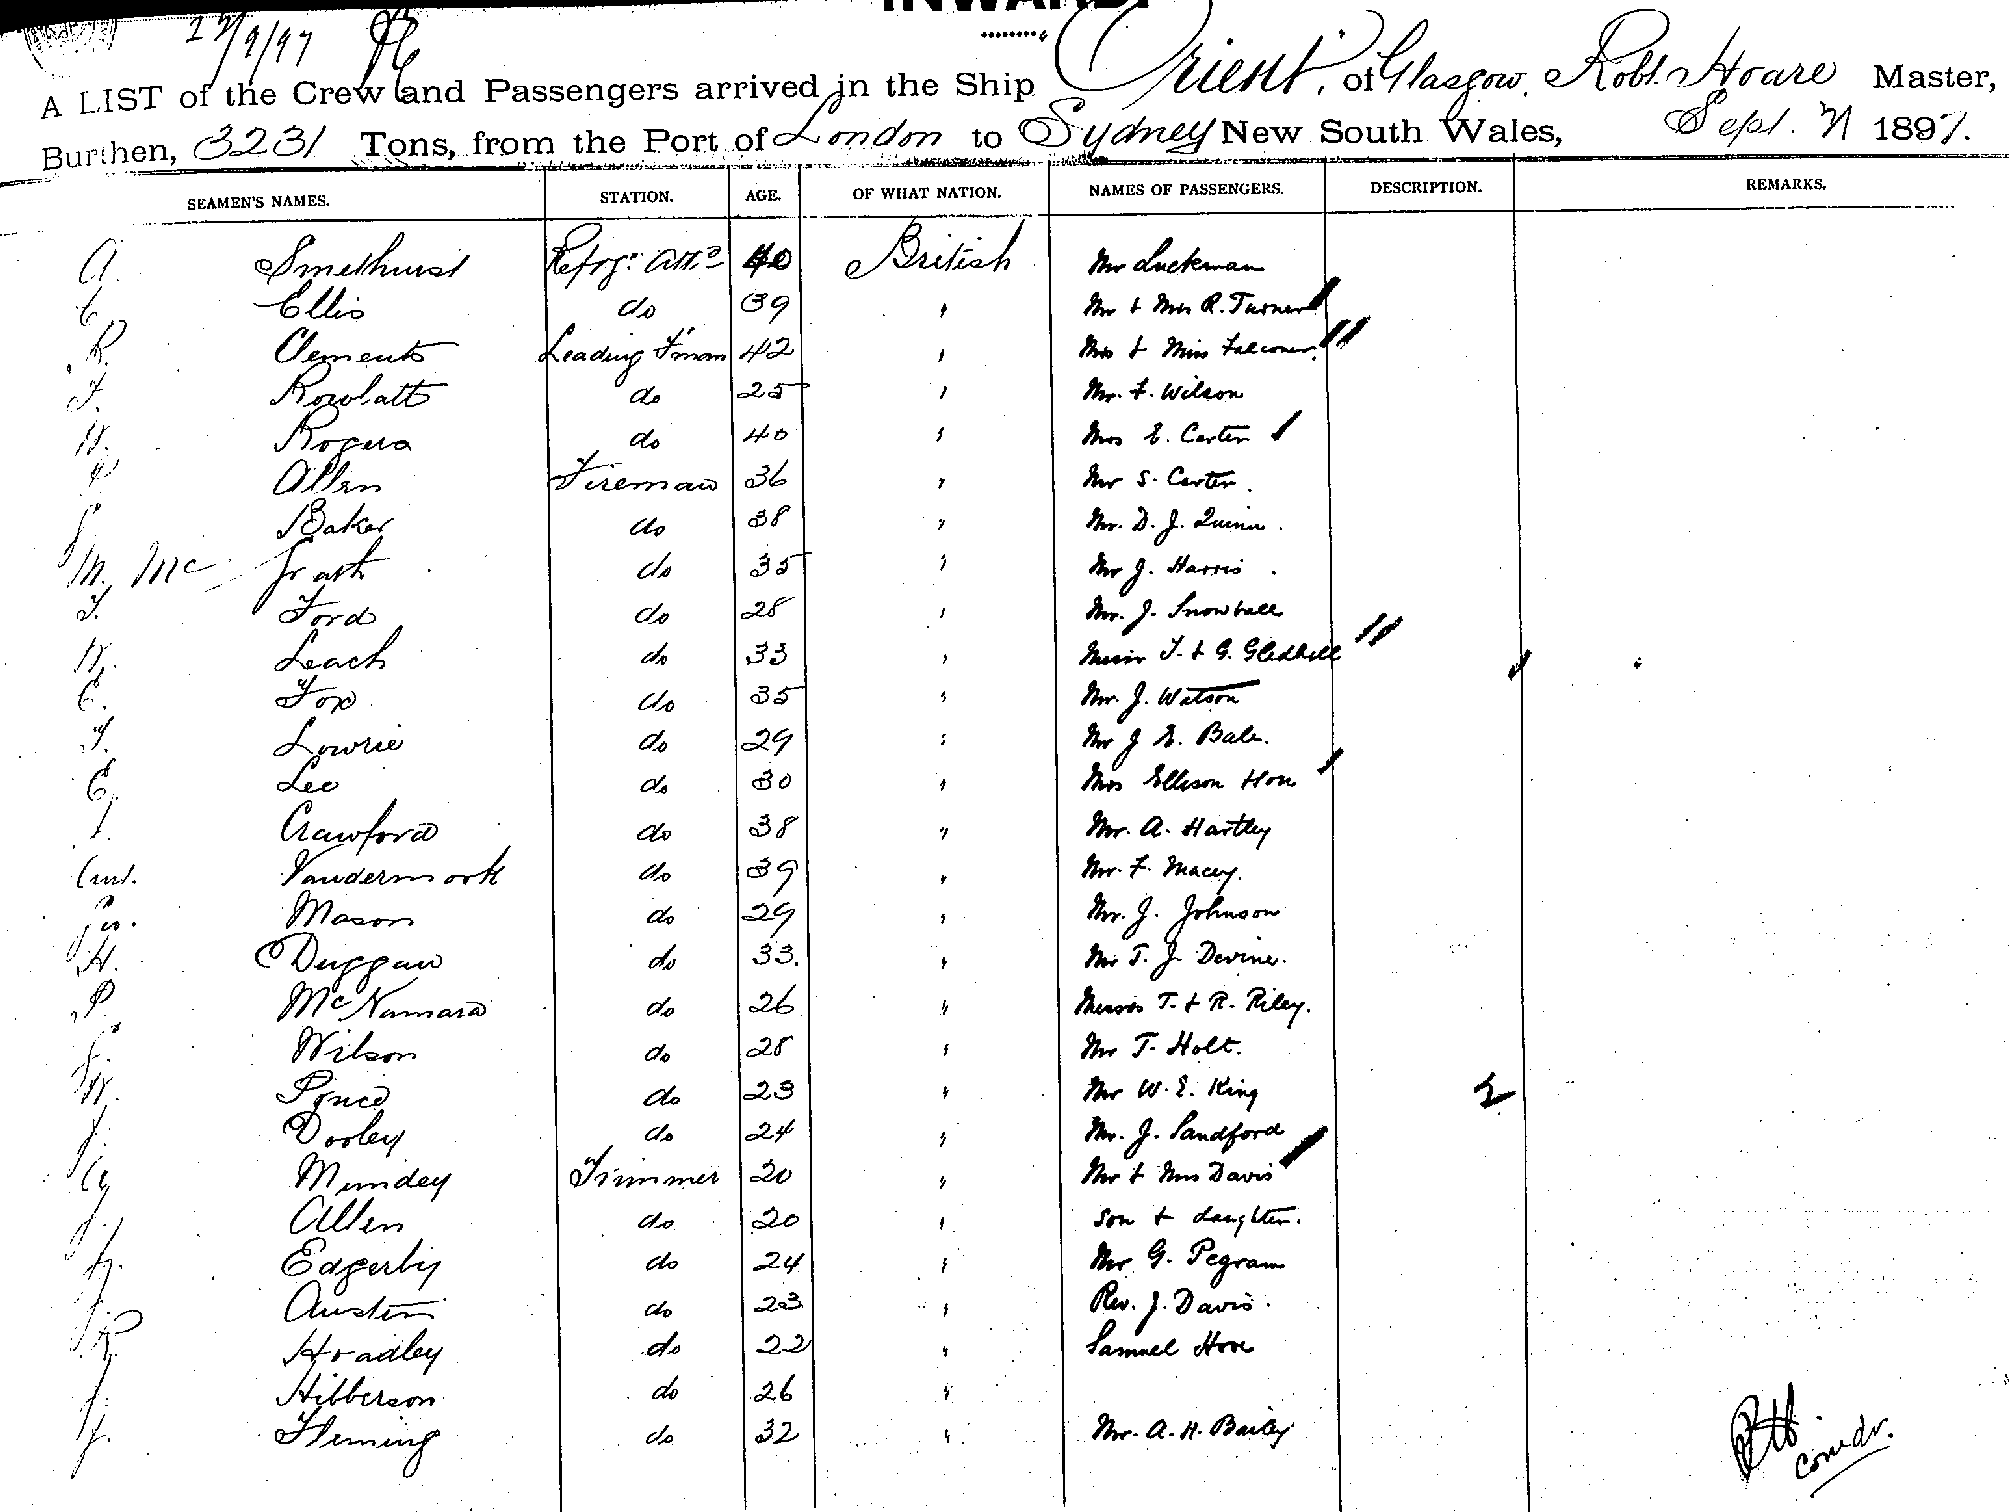 INWARD.
27/9/97
A LIST of the Crew and Passengers arrived in the Ship Orient, of Glasgow, Robt. Hoare Master,
Burthen, 3231 Tons, from the Port of London to Sydney New South Wales, Sept. 1897.
SEAMEN'S NAMES. STATION. AGE. OF WHAT NATION. NAMES OF PASSENGERS. DESCRIPTION. REMARKS.
A. Smethurst 40 British Mr Luckman
C. Ellis do 39 " Mr & Mrs R. Turner
R. Clements Leading F'man 42 " Mrs & Miss Falconer.
F. Rowlatt do 25 " Mr. F. Wilson
W. Rogers do 40 " Mrs E. Carter
Allen Fireman 36 " Mr S. Carter.
Baker do 38 " Mr. D. J. Quinn.
M. Mc Grath do 35 " Mr J. Harris.
T. Ford do 28 " Mr. J. Snowball
W. Leach do 33 " Messrs T. & G. Gledhill
C. Fox do 35 " Mr. J. Watson
T. Lowrie do 29 " Mr J E. Bale.
E. Lee do 30 " Mrs Ellison Hon
Crawford do 38 " Mr. A. Hartley
Vandermook do 39 " Mr. F. Macey.
Mason do 29 " Mr. J. Johnson
H. Duggan do 33. " Mr T. J. Devine.
P. McNamara do 26 " Messrs T. & R. Riley.
Wilson do 28 " Mr T. Holt.
W. do 23 " Mr W. E. King
J. Dooley do 24 " Mr. J. Sandford
Mundey Trimmer 20 " Mr & Mrs Davis
J. Allen do 20 " son & daughter.
Edgerby do 24 " Mr G. Pegram
J. Austin do 23 " Rev. J. Davis.
R. Hoadley do 22 " Samuel Hore
J. Hibberson do 26 "
J. Fleming do 32 " Mr. A. H. Bailey
Comdr.